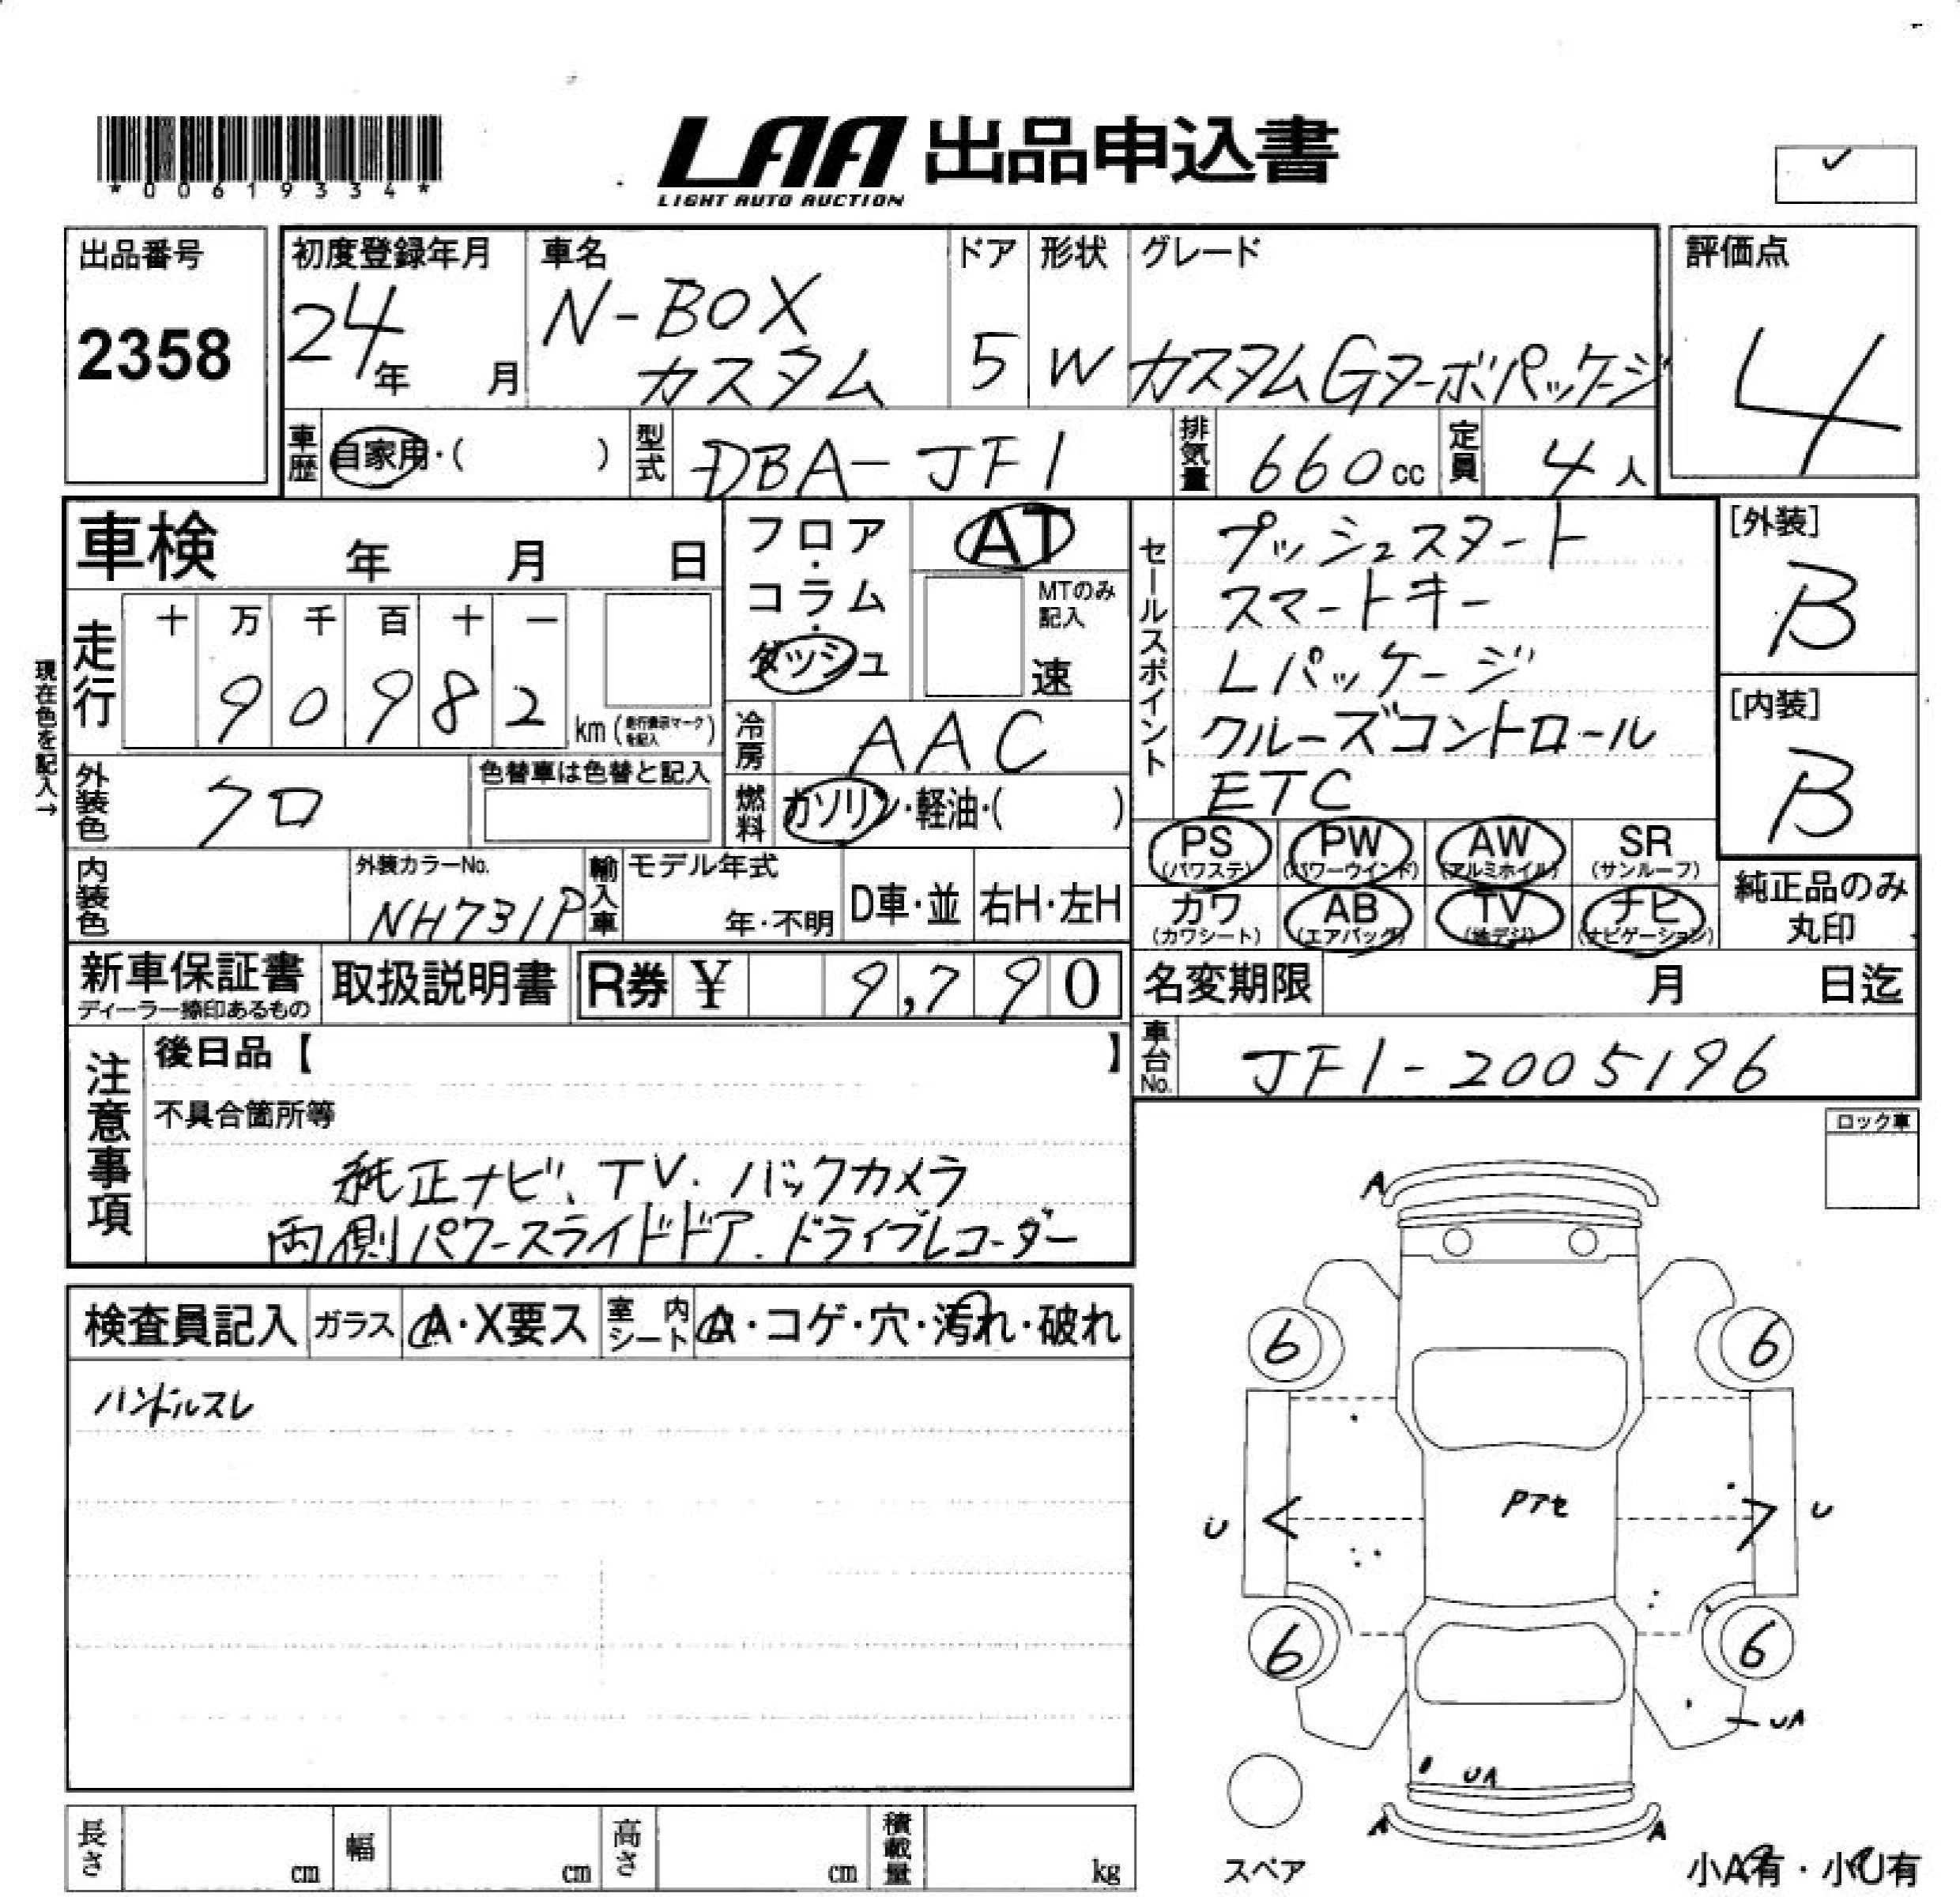 *00619334*
LAA 出品申込書
LIGHT AUTO AUCTION
出品番号
2358
初度登録年月
24年 月
車名
N-BOX
カスタム
ドア
5
形状
W
グレード
カスタムGターボパッケージ
評価点
4
車歴 自家用・( )
型式 DBA-JF1
排気量 660cc
定員 4人
車検 年 月 日
フロア・コラム・ダッシュ
AT
MTのみ記入
速
セールスポイント
プッシュスタート
スマートキー
Lパッケージ
クルーズコントロール
ETC
[外装]
B
[内装]
B
現在色を記入→
走行 十 万 千 百 十 一
9 0 9 8 2
km(走行表示マークを記入)
冷房 AAC
外装色 クロ
色替車は色替と記入
燃料 ガソリン・軽油・( )
PS (パワステ)
PW (パワーウインド)
AW (アルミホイル)
SR (サンルーフ)
カワ (カワシート)
AB (エアバッグ)
TV (地デジ)
ナビ (ナビゲーション)
純正品のみ
丸印
内装色
外装カラーNo.
NH731P
輸入車
モデル年式
年・不明
D車・並
右H・左H
新車保証書
ディーラー捺印あるもの
取扱説明書
R券 ¥ 9,790
名変期限 月 日迄
車台No. JF1-2005196
注意事項
後日品【 】
不具合箇所等
純正ナビ、TV.バックカメラ
両側パワースライドドア.ドライブレコーダー
ロック車
検査員記入 ガラス A・X要ス 室内シート A・コゲ・穴・汚れ・破れ
ハンドルスレ
A
6 6
Pアセ
U U
6 6
UA
UA
A A
スペア
小A有・小U有
長さ cm
幅 cm
高さ cm
積載量 kg